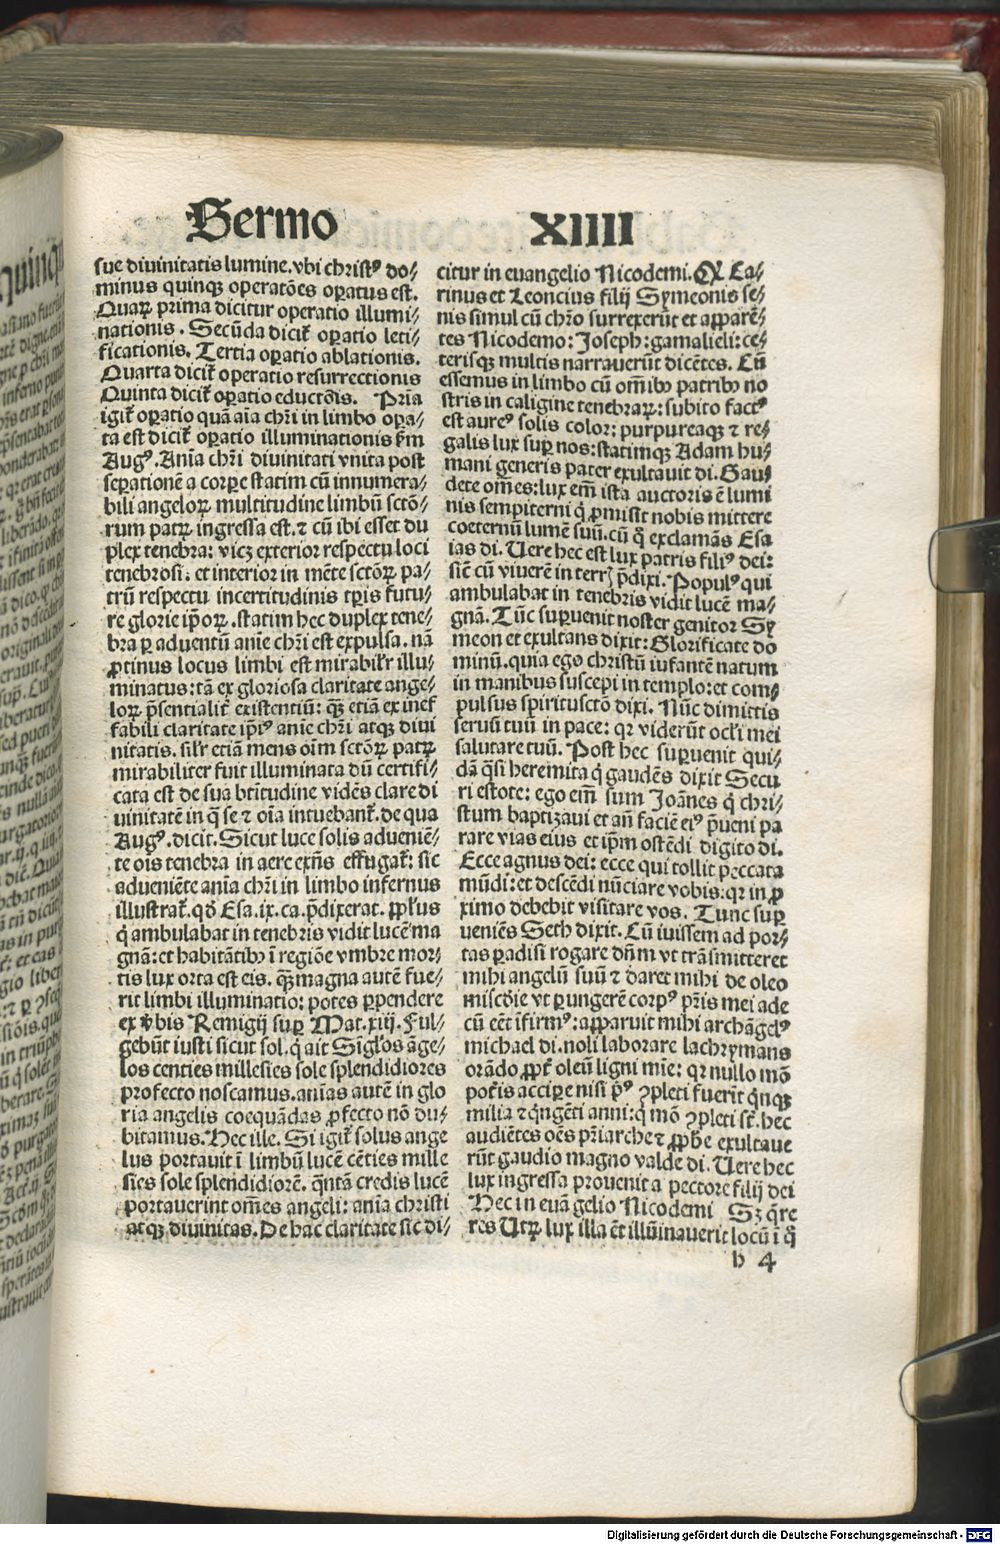 Sermo XIIII
sue diuinitatis lumine. vbi christꝰ do⸗
minus quinqꝫ operatōes oꝑatus est.
Quaꝝ prima dicitur operatio illumi⸗
nationis. Secūda dicit̃ oꝑatio leti⸗
ficationis. Tertia oꝑatio ablationis.
Quarta dicit̃ operatio resurrectionis
Quinta dicit̃ oꝑatio eductōis. Pria
igit̃ oꝑatio quā aīa chr̄i in limbo oꝑa⸗
ta est dicit̃ oꝑatio illuminationis ẜm
Augꝰ. Anīa chr̄i diuinitati vnita post
seꝑationē a corꝑe statim cū innumera⸗
bili angeloꝝ multitudine limbū sctō⸗
rum patꝝ ingressa est. ⁊ cū ibi esset du
plex tenebra: vicꝫ exterior respectu loci
tenebrosi: et interior in mēte sctōꝝ pa⸗
trū respectu incertitudinis tꝑis futu⸗
re glorie ip̄oꝝ. statim hec duplex tene⸗
bra ꝑ aduentū anīe chr̄i est expulsa. nā
ꝓtinus locus limbi est mirabilr̄ illu⸗
minatus: tā ex gloriosa claritate ange⸗
loꝝ p̄sentialit̃ existentiū: qꝫ etiā ex inef
fabili claritate ip̄iꝰ anīe chr̄i atqꝫ diui
nitatis. silr̄ etiā mens oīm sctōꝝ patꝝ
mirabiliter fuit illuminata dū certifi⸗
cata est de sua bt̄itudine vidēs clare di
uinitatē in q̄ se ⁊ oīa intuebant̃. de qua
Augꝰ. dicit. Sicut luce solis adueniē⸗
te oīs tenebra in aere exn̄s effugat̃: sic
adueniēte anīa chr̄i in limbo infernus
illustrat̃. qd̄ Esa. ix. ca. p̄dixerat. ꝓpl̄us
q̇ ambulabat in tenebris vidit lucē ma
gnā: et habitātibꝰ ī regiōe vmbre mor⸗
tis lux orta est eis. qꝫ magna autē fue⸗
rit limbi illuminatio: potes ꝑpendere
ex v̄bis Remigij suꝑ Mat. xiij. Ful⸗
gebūt iusti sicut sol. q̇ ait Sīgl̄os āge⸗
los centies millesies sole splendidiores
profecto noscamus. anīas autē in glo
ria angelis coequādas ꝓfecto nō du⸗
bitamus. Hec ille. Si igit̃ solus ange
lus portauit ī limbū lucē cēties mille
sies sole splendidiorē. q̄ntā credis lucē
portauerint om̄es angeli: anīa christi
atqꝫ diuinitas. De hac claritate sic di⸗
citur in euangelio Nicodemi. Ꝙ Ca⸗
rinus et Leoncius filij Symeonis se⸗
nis simul cū chr̄o surrexerūt et apparē⸗
tes Nicodemo: Joseph: gamalieli: ce⸗
terisqꝫ multis narrauerūt dicētes. Cū
essemus in limbo cū om̄ibꝰ patribꝰ no
stris in caligine tenebraꝝ: subito factꝰ
est aureꝰ solis color: purpureaqꝫ ⁊ re⸗
galis lux suꝑ nos: statimqꝫ Adam hu⸗
mani generis pater exultauit di. Gau⸗
dete om̄es: lux em̄ ista auctoris ē lumi
nis sempiterni q̇ ꝓmisit nobis mittere
coeternū lumē suū. cū q̇ exclamās Esa
ias di. Uere hec est lux patris filiꝰ dei:
sic̄ cū viuerē in terrꝭ p̄dixi. Populꝰ qui
ambulabat in tenebris vidit lucē ma⸗
gnā. Tūc suꝑuenit noster genitor Sy
meon et exultans dixit: Glorificate do
minū. quia ego christū iufantē natum
in manibus suscepi in templo: et com⸗
pulsus spiritusctō dixi. Nūc dimittis
seruū tuū in pace: qꝛ viderūt ocl̄i mei
salutare tuū. Post hec suꝑuenit qui⸗
dā q̄si heremita q̇ gaudēs dixit Secu
ri estote: ego em̄ sum Joānes q̇ chri⸗
stum baptizaui et an̄ faciē eiꝰ p̄ueni pa
rare vias eius et ip̄m ostēdi digito di.
Ecce agnus dei: ecce qui tollit peccata
mūdi: et descēdi nūciare vobis. qꝛ in ꝓ
ximo debebit visitare vos. Tunc suꝑ
ueniēs Seth dixit. Cū iuissem ad por⸗
tas ꝑadisi rogare dn̄m vt trāsmitteret
mihi angelū suū ⁊ daret mihi de oleo
miscd̄ie vt ꝑungerē corpꝰ pr̄is mei ade
cū eēt īfirmꝰ: apparuit mihi archāgelꝰ
michael di. noli laborare lachrymans
orādo ꝓpt̃ oleū ligni mīe: qꝛ nullo mō
pot̃is acciꝑe nisi pꝰ ꝯpleti fuerīt q̇nqꝫ
milia ⁊ q̇ngēti anni: q̇ mō ꝯpleti st̄. hec
audiētes oēs pr̄iarche ⁊ ꝓph̄e exultaue
rūt gaudio magno valde di. Uere hec
lux ingressa prouenit a pectore filij dei
Hec in euāgelio Nicodemi Sꝫ q̄re
res Utꝝ lux illa ēt illūinauerit locū ī q̇
b 4
Digitalisierung gefördert durch die Deutsche Forschungsgemeinschaft - DFG